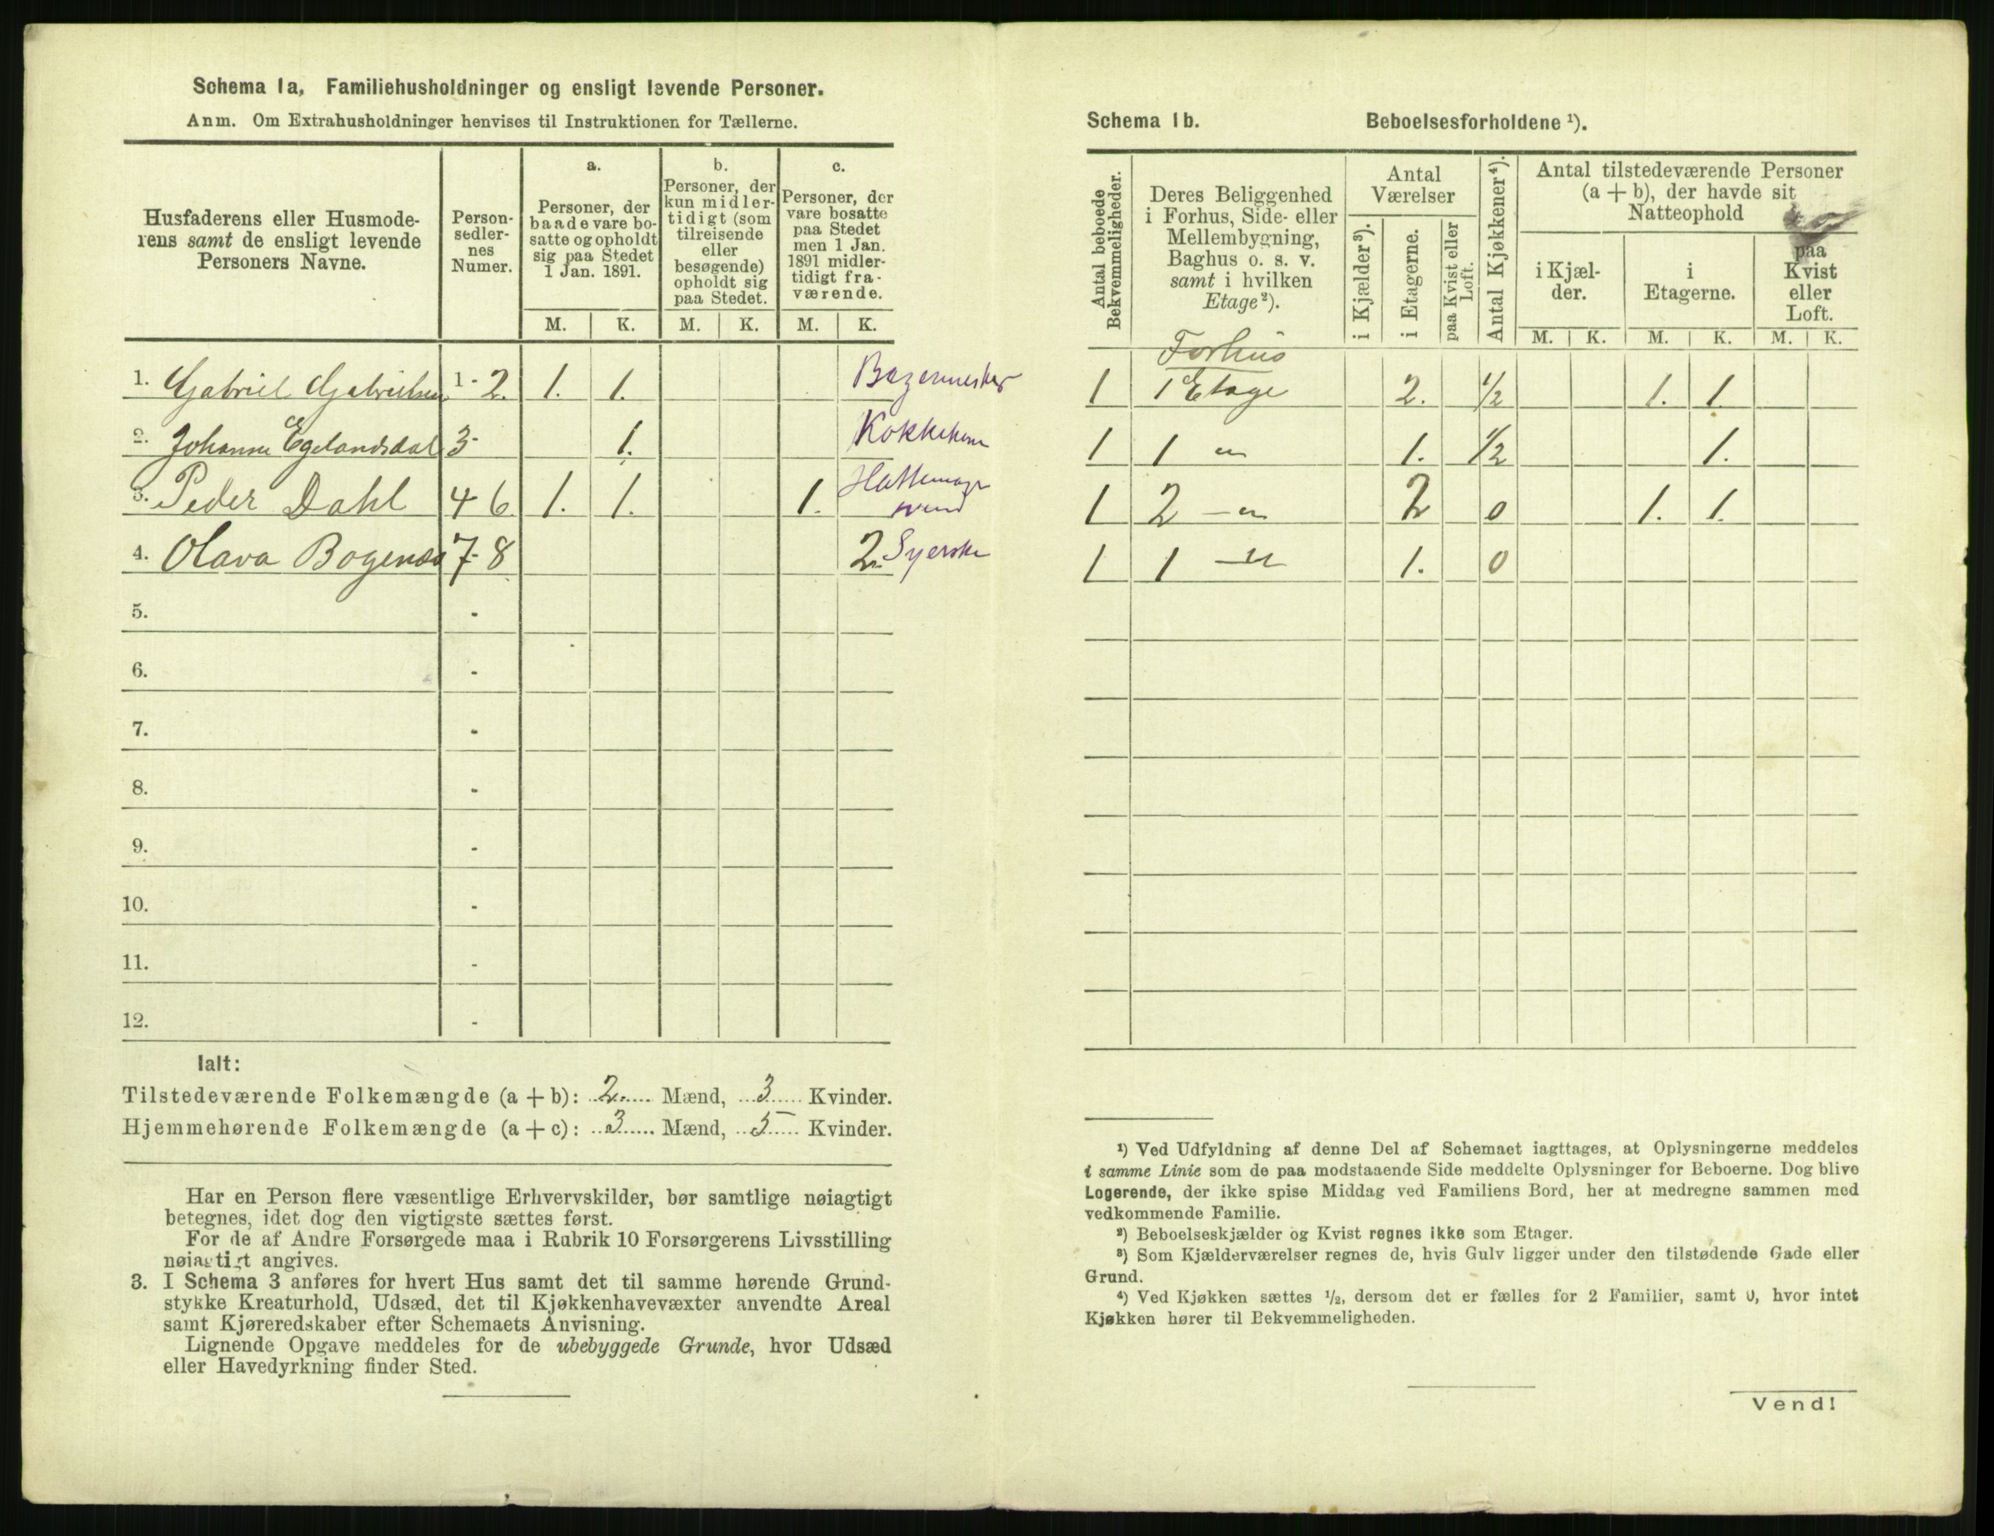 Schema 1a, Familiehusholdninger og ensligt levende Personer.
Anm. Om Extrahusholdninger henvises til Instruktionen for Tællerne.
Husfaderens eller Husmode-
rens samt de ensligt levende
Personers Navne.
Person-
sedler-
nes
Numer.
a.
Personer, der
baade vare bo-
satte og opholdt
sig paa Stedet
1 Jan. 1891.
b.
Personer, der
kun midler-
tidigt (som
tilreisende
eller
besøgende)
opholdt sig
paa Stedet.
c.
Personer, der
vare bosatte
paa Stedet
men 1 Jan.
1891 midler-
tidigt fra-
værende.
M. K. M. K. M. K.
1. Gabriel Gabrielsen 1 - 2. 1. 1.
2. Johanne Egelandsdal 3 - 1. Kokkekone
3. Peder Dahl 4 - 6 1. 1. 1.
4. Olava Bogens 7 - 8 2. Syerske
5. -
6. -
7. -
8. -
9. -
10. -
11. -
12. -
Ialt:
Tilstedeværende Folkemængde (a + b): 2 Mænd, 3 Kvinder.
Hjemmehørende Folkemængde (a + c): 3 Mænd, 5 Kvinder.
Har en Person flere væsentlige Erhvervskilder, bør samtlige nøiagtigt
betegnes, idet dog den vigtigste sættes først.
For de af Andre Forsørgede maa i Rubrik 10 Forsørgerens Livsstilling
nøiagtigt angives.
3. I Schema 3 anføres for hvert Hus samt det til samme hørende Grund-
stykke Kreaturhold, Udsæd, det til Kjøkkenhavevæxter anvendte Areal
samt Kjøreredskaber efter Schemaets Anvisning.
Lignende Opgave meddeles for de ubebyggede Grunde, hvor Udsæd
eller Havedyrkning finder Sted.
Schema 1b. Beboelsesforholdene ¹).
Antal beboede
Bekvemmeligheder.
Deres Beliggenhed
i Forhus, Side- eller
Mellembygning,
Baghus o. s. v.
samt i hvilken
Etage²).
Antal
Værelser
i Kjælder³).
i Etagerne.
paa Kvist eller
Loft.
Antal Kjøkkener⁴).
Antal tilstedeværende Personer
(a + b), der havde sit
Natteophold
i Kjæl-
der.
i
Etagerne.
paa
Kvist
eller
Loft.
M. K. M. K. M. K.
Forhus
1 1 Etage 2. 1/2 1. 1.
1 1 — " — 1. 1/2 1.
1 2 — " — 2 0 1. 1.
1 1 — " — 1. 0
¹) Ved Udfyldning af denne Del af Schemaet iagttages, at Oplysningerne meddeles
i samme Linie som de paa modstaaende Side meddelte Oplysninger for Beboerne. Dog blive
Logerende, der ikke spise Middag ved Familiens Bord, her at medregne sammen med
vedkommende Familie.
²) Beboelseskjælder og Kvist regnes ikke som Etager.
³) Som Kjælderværelser regnes de, hvis Gulv ligger under den tilstødende Gade eller
Grund.
⁴) Ved Kjøkken sættes ½, dersom det er fælles for 2 Familier, samt 0, hvor intet
Kjøkken hører til Bekvemmeligheden.
Vend!